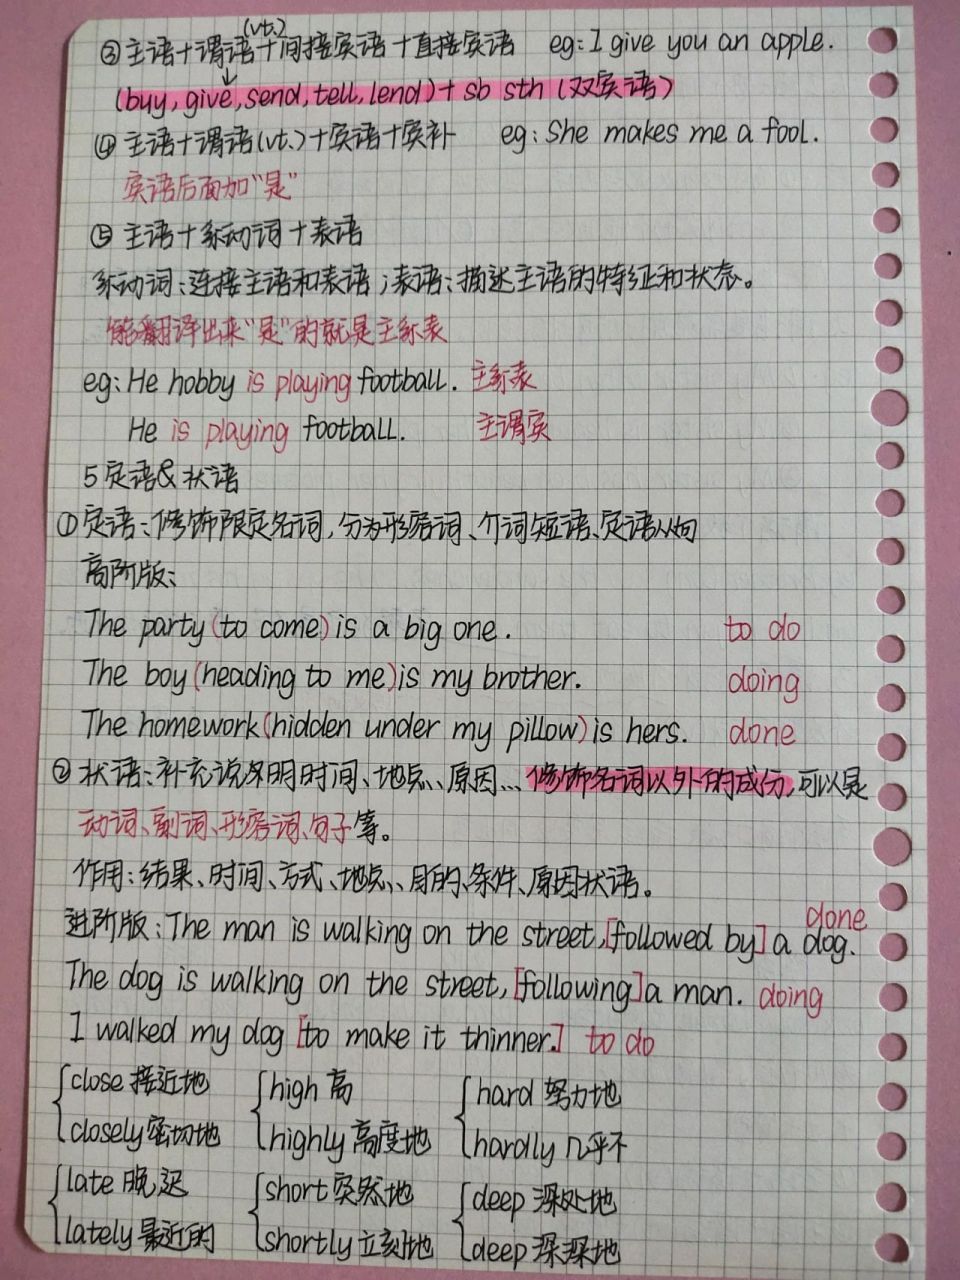 (vt.)
③主语+谓语+间接宾语+直接宾语 eg:I give you an apple.
(buy,give,send,tell,lend)+ sb sth (双宾语)
④ 主语+谓语(vt.)+宾语+宾补 eg:She makes me a fool.
宾语后面加“是”
⑤ 主语+系动词+表语
系动词:连接主语和表语;表语:描述主语的特征和状态。
能翻译出来“是”的就是主系表
eg:He hobby is playing football. 主系表
He is playing football. 主谓宾
5 定语&状语
①定语:修饰限定名词,分为形容词、介词短语、定语从句
高阶版:
The party (to come) is a big one. to do
The boy (heading to me) is my brother. doing
The homework (hidden under my pillow) is hers. done
② 状语:补充说明时间、地点、原因... 修饰名词以外的成分,可以是
动词、副词、形容词、句子等。
作用:结果、时间、方式、地点、目的、条件、原因状语。
done
进阶版:The man is walking on the street,[followed by] a dog.
The dog is walking on the street,[following] a man. doing
I walked my dog [to make it thinner.] to do
close 接近地 high 高 hard 努力地
closely 密切地 highly 高度地 hardly 几乎不
late 晚,迟 short 突然地 deep 深处地
lately 最近的 shortly 立刻地 deep 深深地